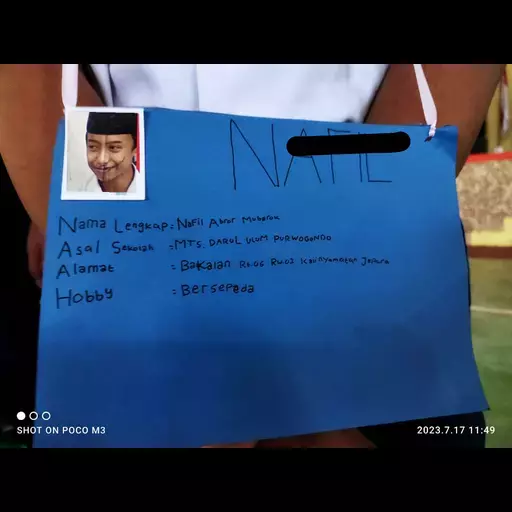 NAFIL
Nama Lengkap : Nafil Abror Mubarok
Asal Sekolah : MTS. DARUL ULUM PURWOGONDO
Alamat : Bakalan Rt.06 Rw.03 Kalinyamatan Jepara
Hobby : Bersepeda
SHOT ON POCO M3
2023.7.17 11:49